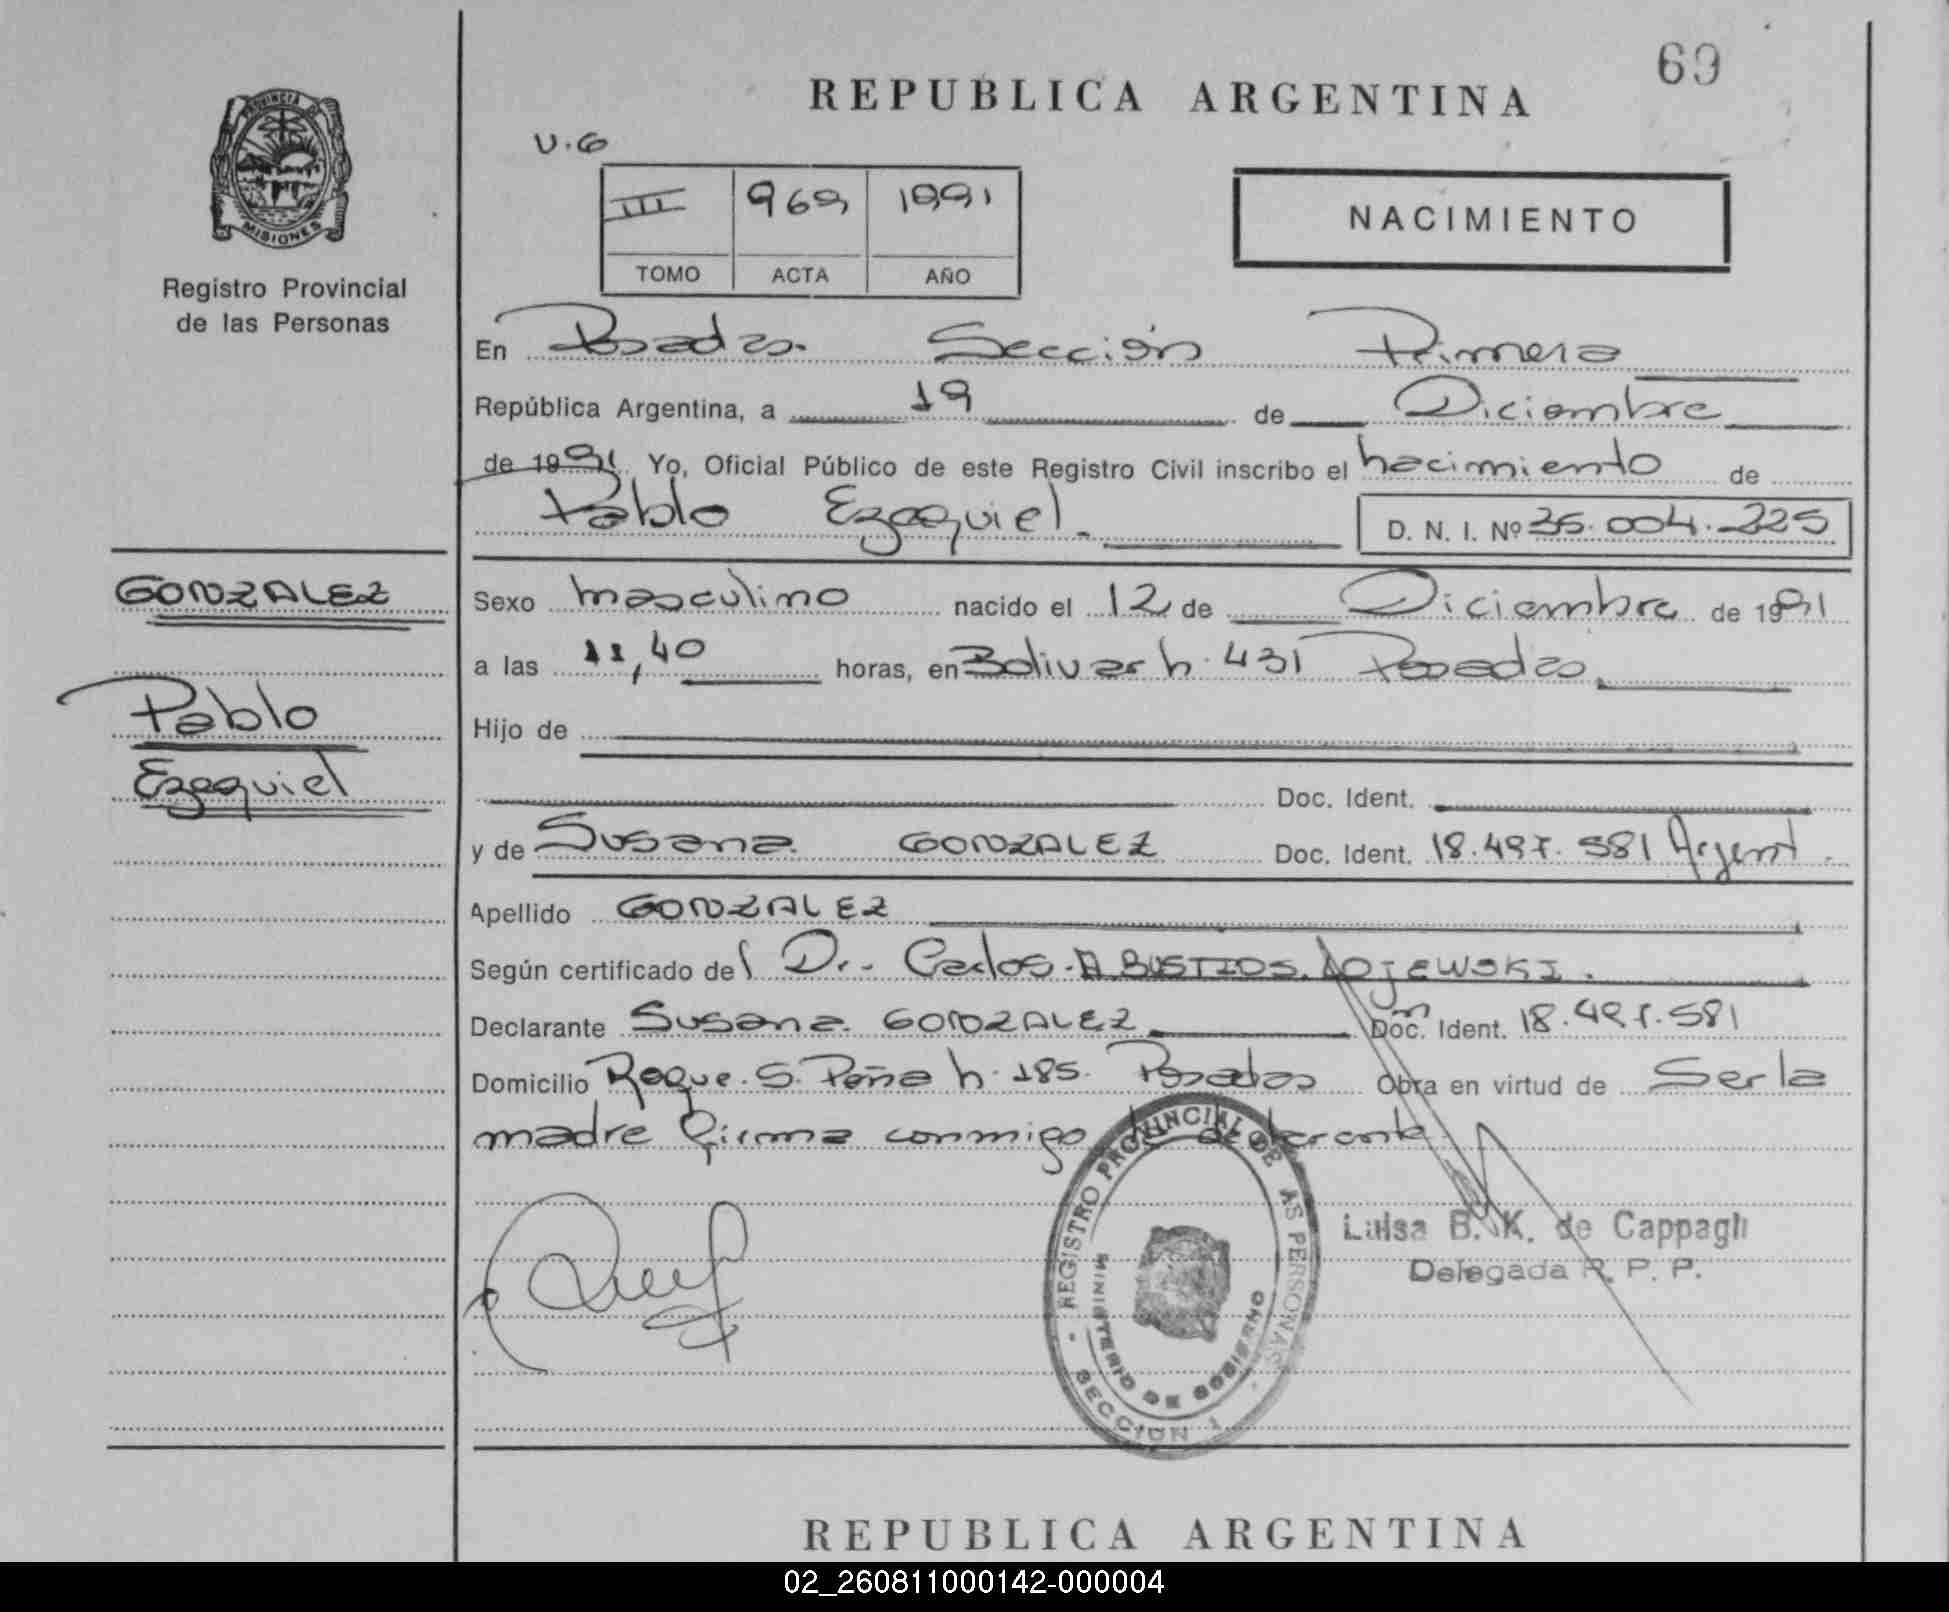 69
REPUBLICA ARGENTINA
V.G
III 969 1991
TOMO ACTA AÑO
NACIMIENTO
PROVINCIA DE
MISIONES
Registro Provincial
de las Personas
En Posadas. Sección Primera
República Argentina, a 19 de Diciembre
de 1991 Yo, Oficial Público de este Registro Civil inscribo el nacimiento de
Pablo Ezequiel.
D. N. I. Nº 36.004.225
GONZALEZ
Pablo
Ezequiel
Sexo masculino nacido el 12 de Diciembre de 1991
a las 11,40 horas, en Bolivar n. 431 Posadas.
Hijo de
Doc. Ident.
y de Susana GONZALEZ Doc. Ident. 18.497.581 Argent.
Apellido GONZALEZ
Según certificado del Dr. Carlos. A BUSTIOS. LOJEWSKI.
Declarante Susana GONZALEZ Doc. Ident. 18.497.581
Domicilio Roque. S. Peña n. 185. Posadas Obra en virtud de Ser la
madre firma conmigo la declarante
REGISTRO PROVINCIAL DE LAS PERSONAS
MINISTERIO DE GOBIERNO
SECCION 1
Luisa B. K. de Cappagli
Delegada R. P. P.
REPUBLICA ARGENTINA
02_260811000142-000004